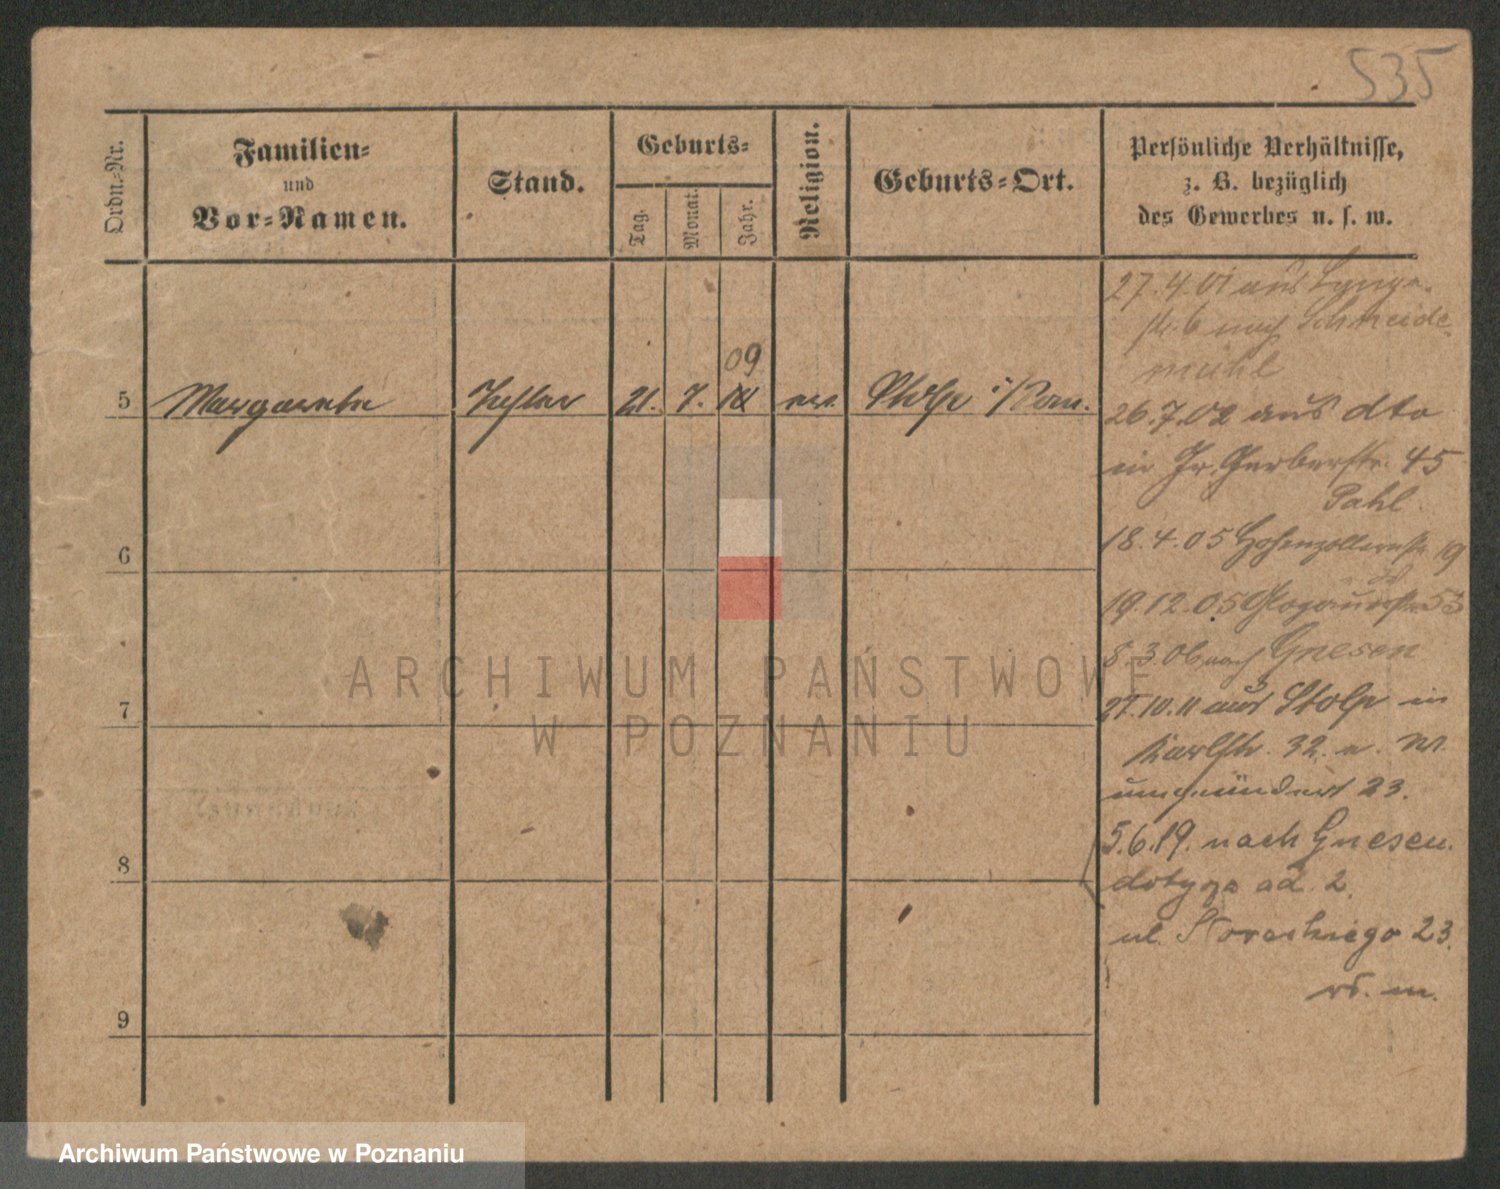 535
Ordn.-Nr.
Familien-
und
Vor-Namen.
Stand.
Geburts-
Tag.
Monat.
Jahr.
Religion.
Geburts-Ort.
Persönliche Verhältnisse,
z. B. bezüglich
des Gewerbes u. s. w.
27.4.01 aus
6 nach Schneide-
mühl
09
5 Margarete Tochter 21. 7. ev. Stolp i/Pom.
26.7.02 aus dto
in Gr. Gerberstr. 45
Pahl.
18.4.05 Hohenzollernstr. 19
6
19.12.05 Glogauerstr. 53
8.3.06 nach Gnesen
27.10.11 aus Stolp in
7
Karlstr. 32. e. W.
umgeändert 23.
5.6.19. nach Gnesen.
8
dotyza ad. 2.
ul. 23.
9
ARCHIWUM PAŃSTWOWE
W POZNANIU
Archiwum Państwowe w Poznaniu